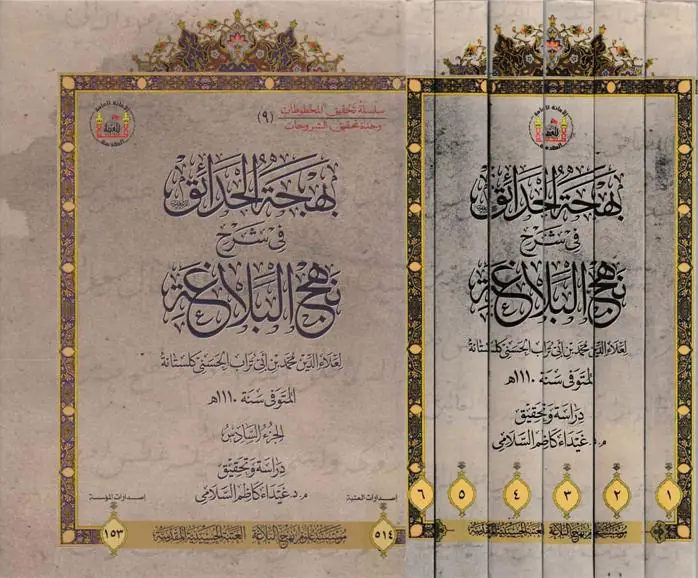 سلسلة تحقيق المخطوطات
وحدة تحقيق الشروحات
(٩)
بهجة الحدائق
في شرح
نهج البلاغة
لعلاء الدين محمد بن أبي تراب الحسني كلستانة
المتوفى سنة ١١١٠هـ
الجزء السادس
دراسة وتحقيق
م.د. غيداء كاظم السلامي
إصدارات العتبة
٥١٤
إصدارات المؤسسة
١٥٣
مؤسسة علوم نهج البلاغة العتبة الحسينية المقدسة
بهجة الحدائق
في شرح
نهج البلاغة
لعلاء الدين محمد بن أبي تراب الحسني كلستانة
المتوفى سنة ١١١٠هـ
دراسة وتحقيق
م.د. غيداء كاظم السلامي
١
٢
٣
٤
٥
٦
مؤسسة علوم نهج البلاغة العتبة الحسينية المقدسة